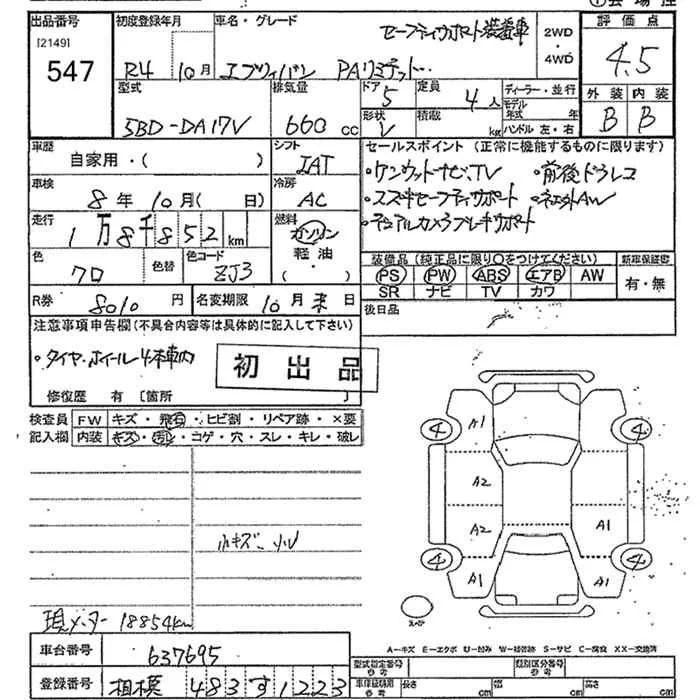 ①会場控
出品番号 初度登録年月 車名・グレード セーフティサポート装着車 2WD・4WD 評価点
[2149]
547 R4 10月 エブリイバン PAリミテッド 4.5
型式 排気量 ドア 5 定員 4人 ディーラー・並行 外装 内装
5BD-DA17V 660cc 形状 V 積載 kg モデル年式 年 ハンドル 左・右 B B
車歴 自家用・( ) シフト IAT セールスポイント (正常に機能するものに限ります)
車検 8年 10月( 日) 冷房 AC
・ケンウッドナビ、TV ・前後ドラレコ
・スズキセーフティサポート ・社外AW
・デュアルカメラブレーキサポート
走行 1万8千852km 燃料 ガソリン・軽油・( )
色 クロ 色替 色コード ZJ3
装備品(純正品に限り○をつけてください) 新車保証書
PS PW ABS エアB AW 有・無
SR ナビ TV カワ
R券 8010円 名変期限 10月末日 後日品
注意事項申告欄(不具合内容等は具体的に記入して下さい)
・タイヤ・ホイール4本車内
初出品
修復歴 有 [箇所 ]
検査員記入欄 FW キズ・飛石・ヒビ割・リペア跡・×要
内装 キズ・汚れ・コゲ・穴・スレ・キレ・破レ
A1
4 4
A2
A2 A1
4 4
A1 A1
小キズ、小U
スペア
現メーター 18854km
A-キズ E-エクボ U-凹み W-補修跡 S-サビ C-腐食 XX-交換済
車台番号 637695 型式指定番号 参考 類別区分番号 参考
登録番号 相模 483 す 1223 車庫証明用 参考 長さ cm 幅 cm 高さ cm